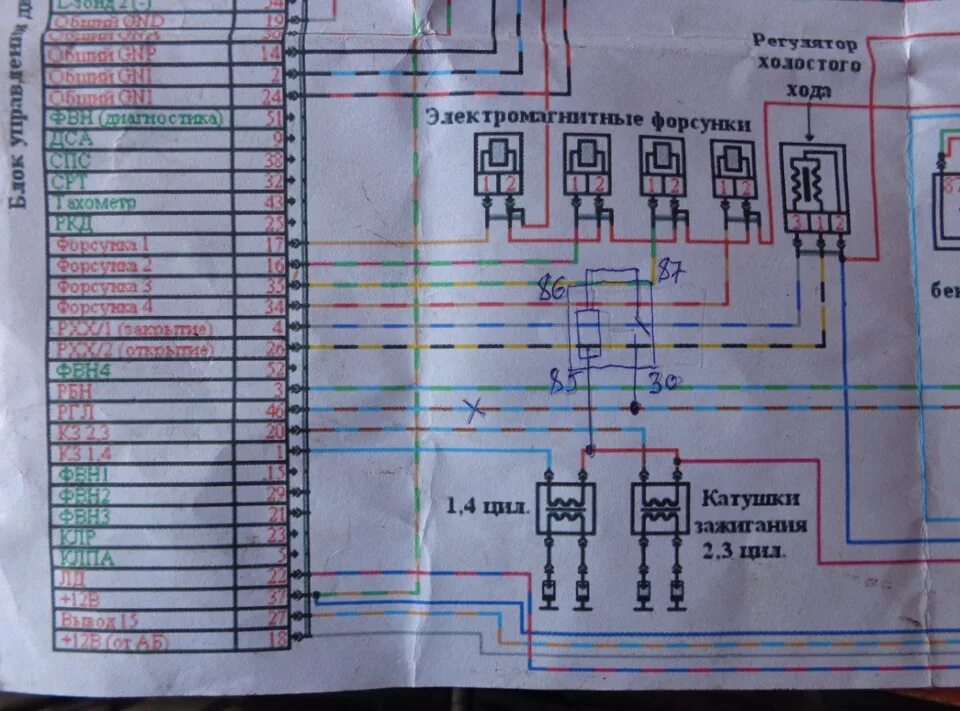 Блок управления
L-зонд 2 [-] 54
Общий GND 19
Общий GNP 14
Общий GNI 2
Общий GNI 24
ФВН (диагностика) 51
ДСА 9
СПС 38
СРТ 32
Тахометр 43
РКД 25
Форсунка 1 17
Форсунка 2 16
Форсунка 3 35
Форсунка 4 34
РХХ/1 (закрытие) 4
РХХ/2 (открытие) 26
ФВН4 52
РБН 3
РГЛ 46
КЗ 2,3 20
КЗ 1,4 1
ФВН1 15
ФВН2 29
ФВН3 21
КЛР 23
КЛПА 5
ЛД 22
+12В 37
Вывод 15 27
+12В (от АБ) 18
Регулятор
холостого
хода
Электромагнитные форсунки
1 2
1 2
1 2
1 2
3 1 2
86
87
85
30
X
1,4 цил.
Катушки
зажигания
2,3 цил.
87
бен